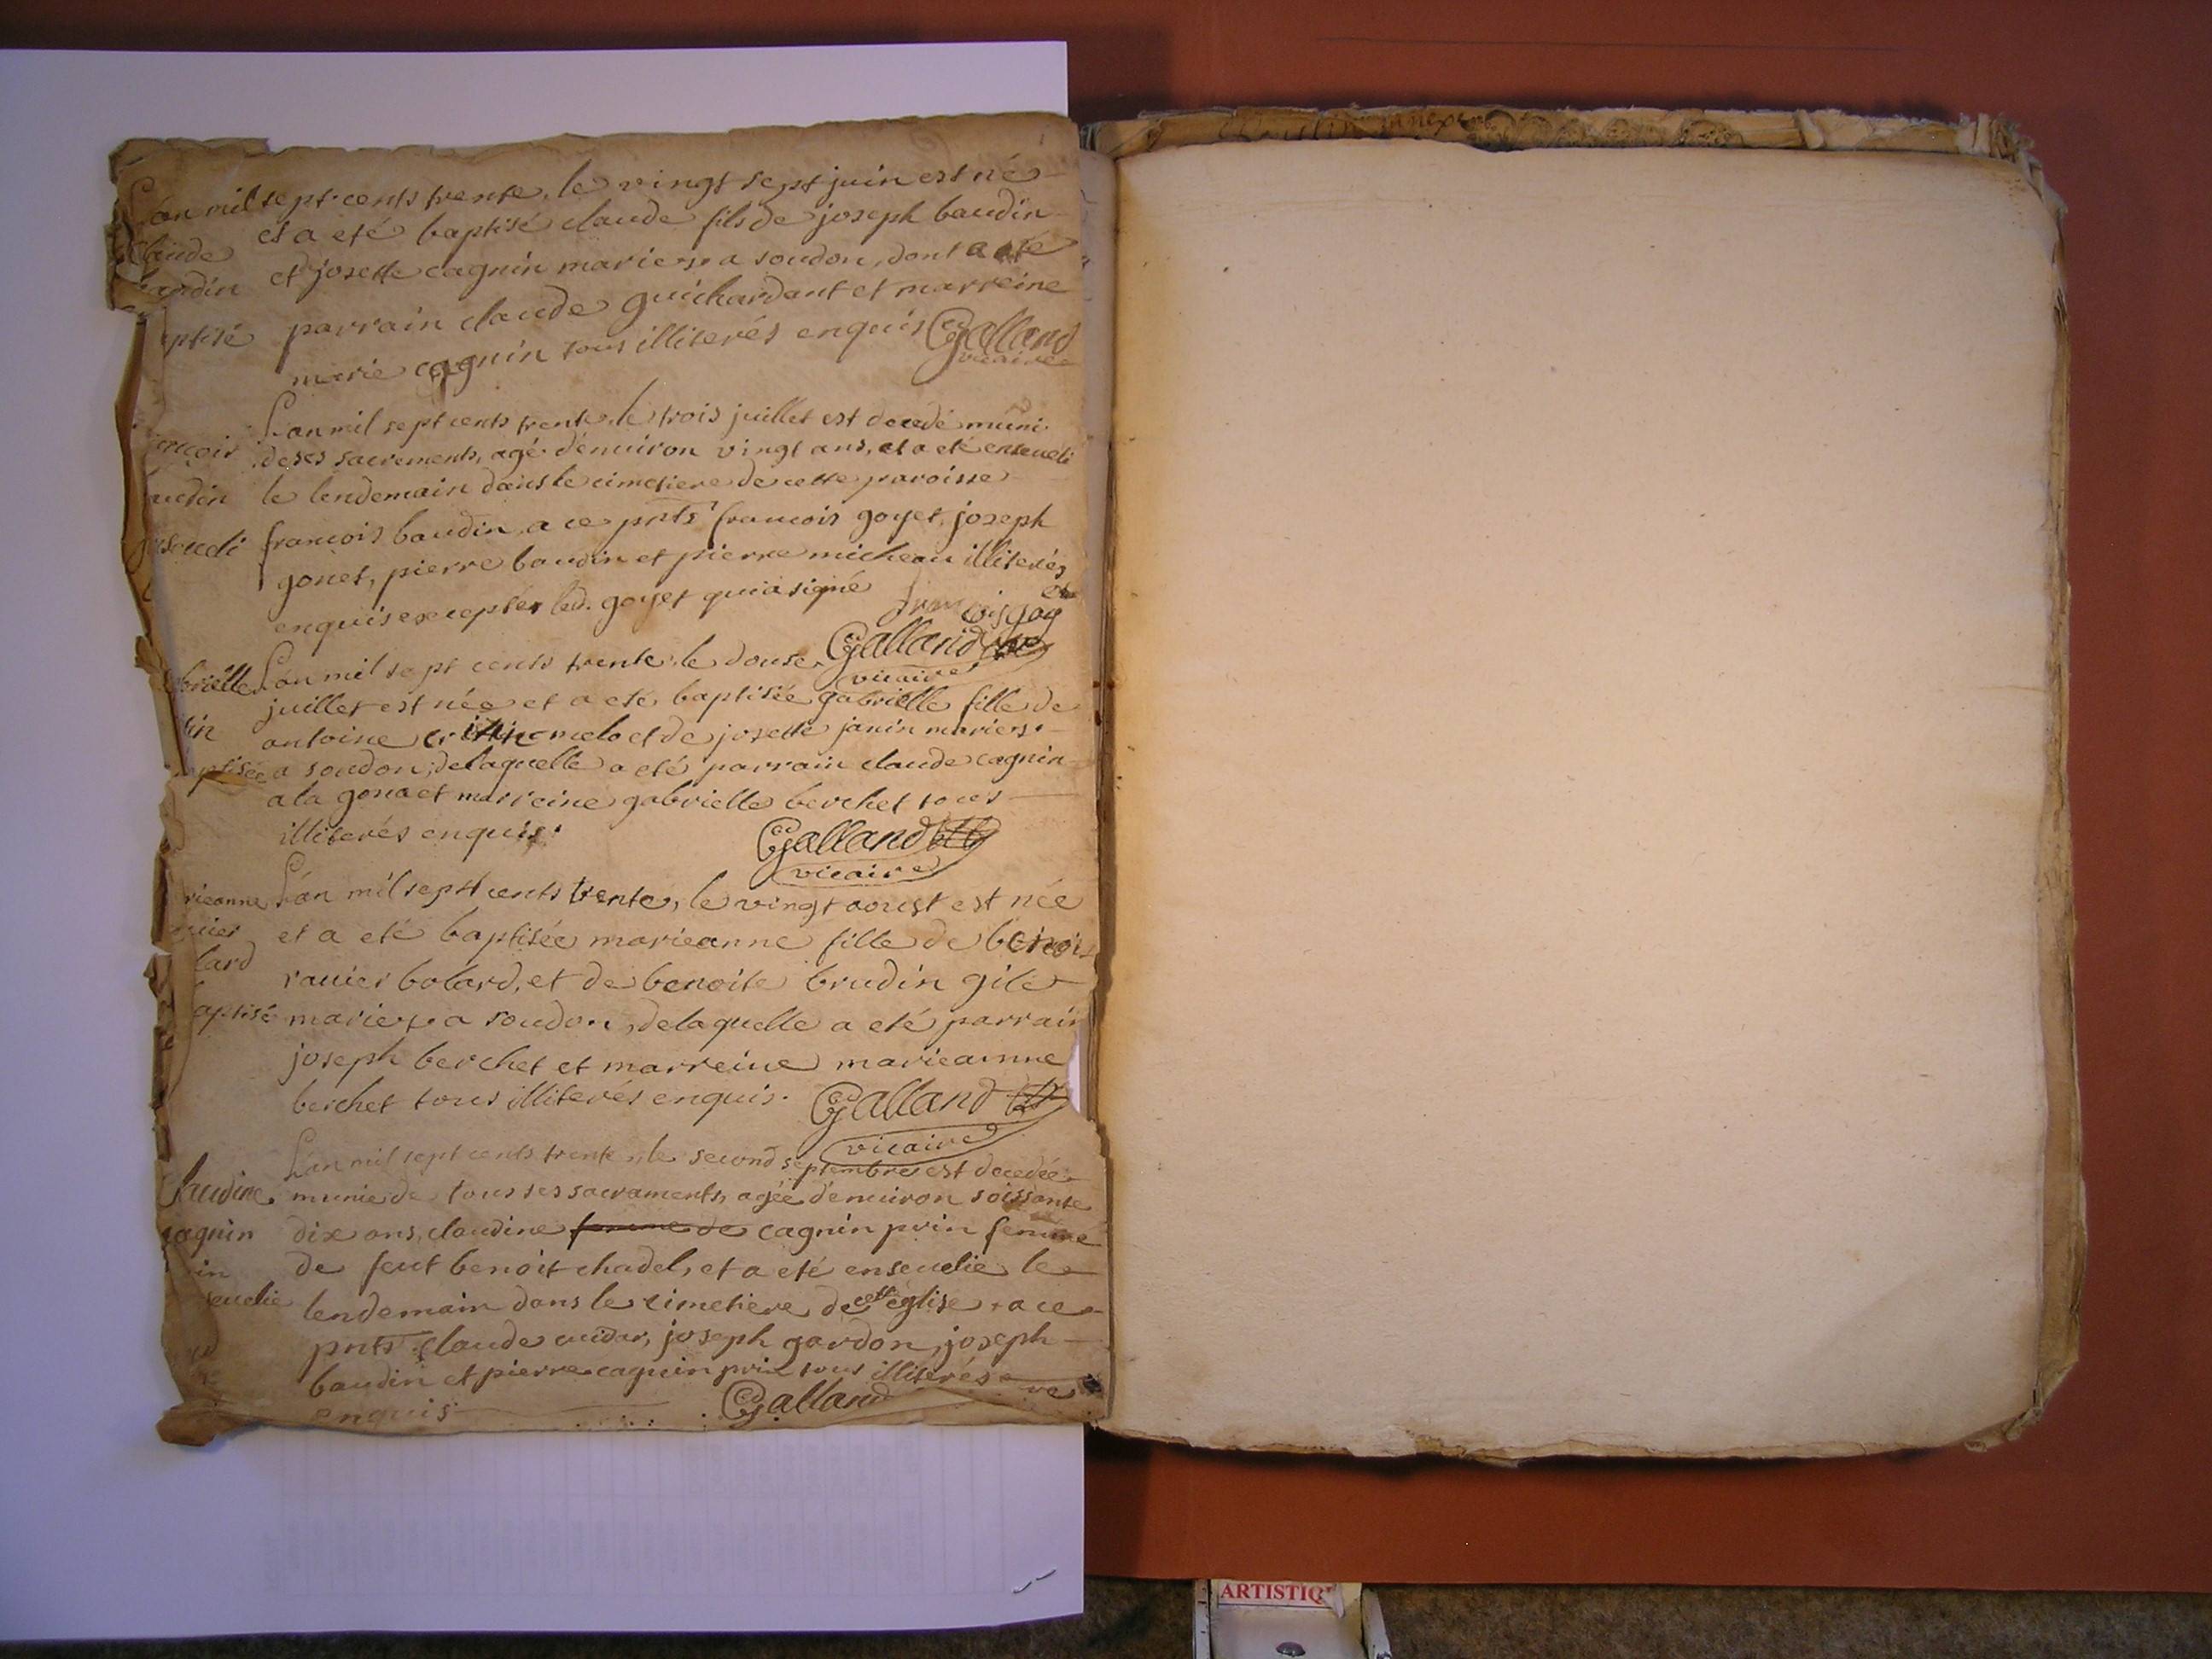 L'an mil sept cents trente, le vingt sept juin est né
et a eté baptisé claude fils de joseph baudin
et josette cagnin maries a soudon, dont a eté
parrain claude guichardant et marreine
marie cagnin tous illiterés enquis Galland
vicaire
claude
baudin
aptisé
L'an mil sept cents trente, le trois juillet est decedé muni
de ses sacrements, agé d'enuiron vingt ans, et a eté enseueli
le lendemain dans le cimetiere de cette paroisse
francois baudin, a ce pnts francois goyet, joseph
gonet, pierre baudin et pierre micheau illiterés
enquis exceptés led. goyet qui a signé
francois goy
et
Galland
vicaire
ancois
audin
nseueli
L'an mil sept cents trente, le douse
juillet est née et a eté baptisée gabrielle fille de
antoine melo et de josette janin maries
a soudon, de laquelle a eté parrain claude cagnin
a la gona et marreine gabrielle berchet tous
illiterés enquis.
Galland
vicaire
abrielle
tin
aptisée
L'an mil sept cents trente, le vingt aoust est née
et a eté baptisée marieanne fille de benoit
rauier bolard, et de benoite brudin gile
maries a soudon, de laquelle a eté parrain
joseph berchet et marreine marieanne
berchet tous illiterés enquis. Galland
vicaire
rieanne
auier
lard
aptisé
L'an mil sept cents trente, le second septembre est decedée
munie de tous ses sacraments, agée d'enuiron soissante
dix ans, claudine femme de cagnin prin femme
de feut benoit chadel, et a eté enseuelie le
lendemain dans le cimetiere de cette église, a ce
pnts claude uidar, joseph gardon, joseph
baudin et pierre cagnin prin tous illiterés
enquis
Galland
claudine
cagnin
in
seuelie
ARTISTIQ